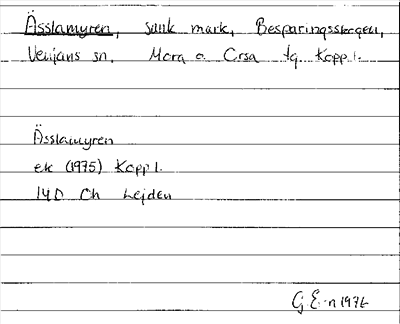 Ässlamyren, sank mark, Besparingsskogen,
Venjans sn. Mora o. Orsa tg. Kopp l.
Ässlamyren
ek (1975) Kopp l.
14D Ch Lejden
G. E-n 1976